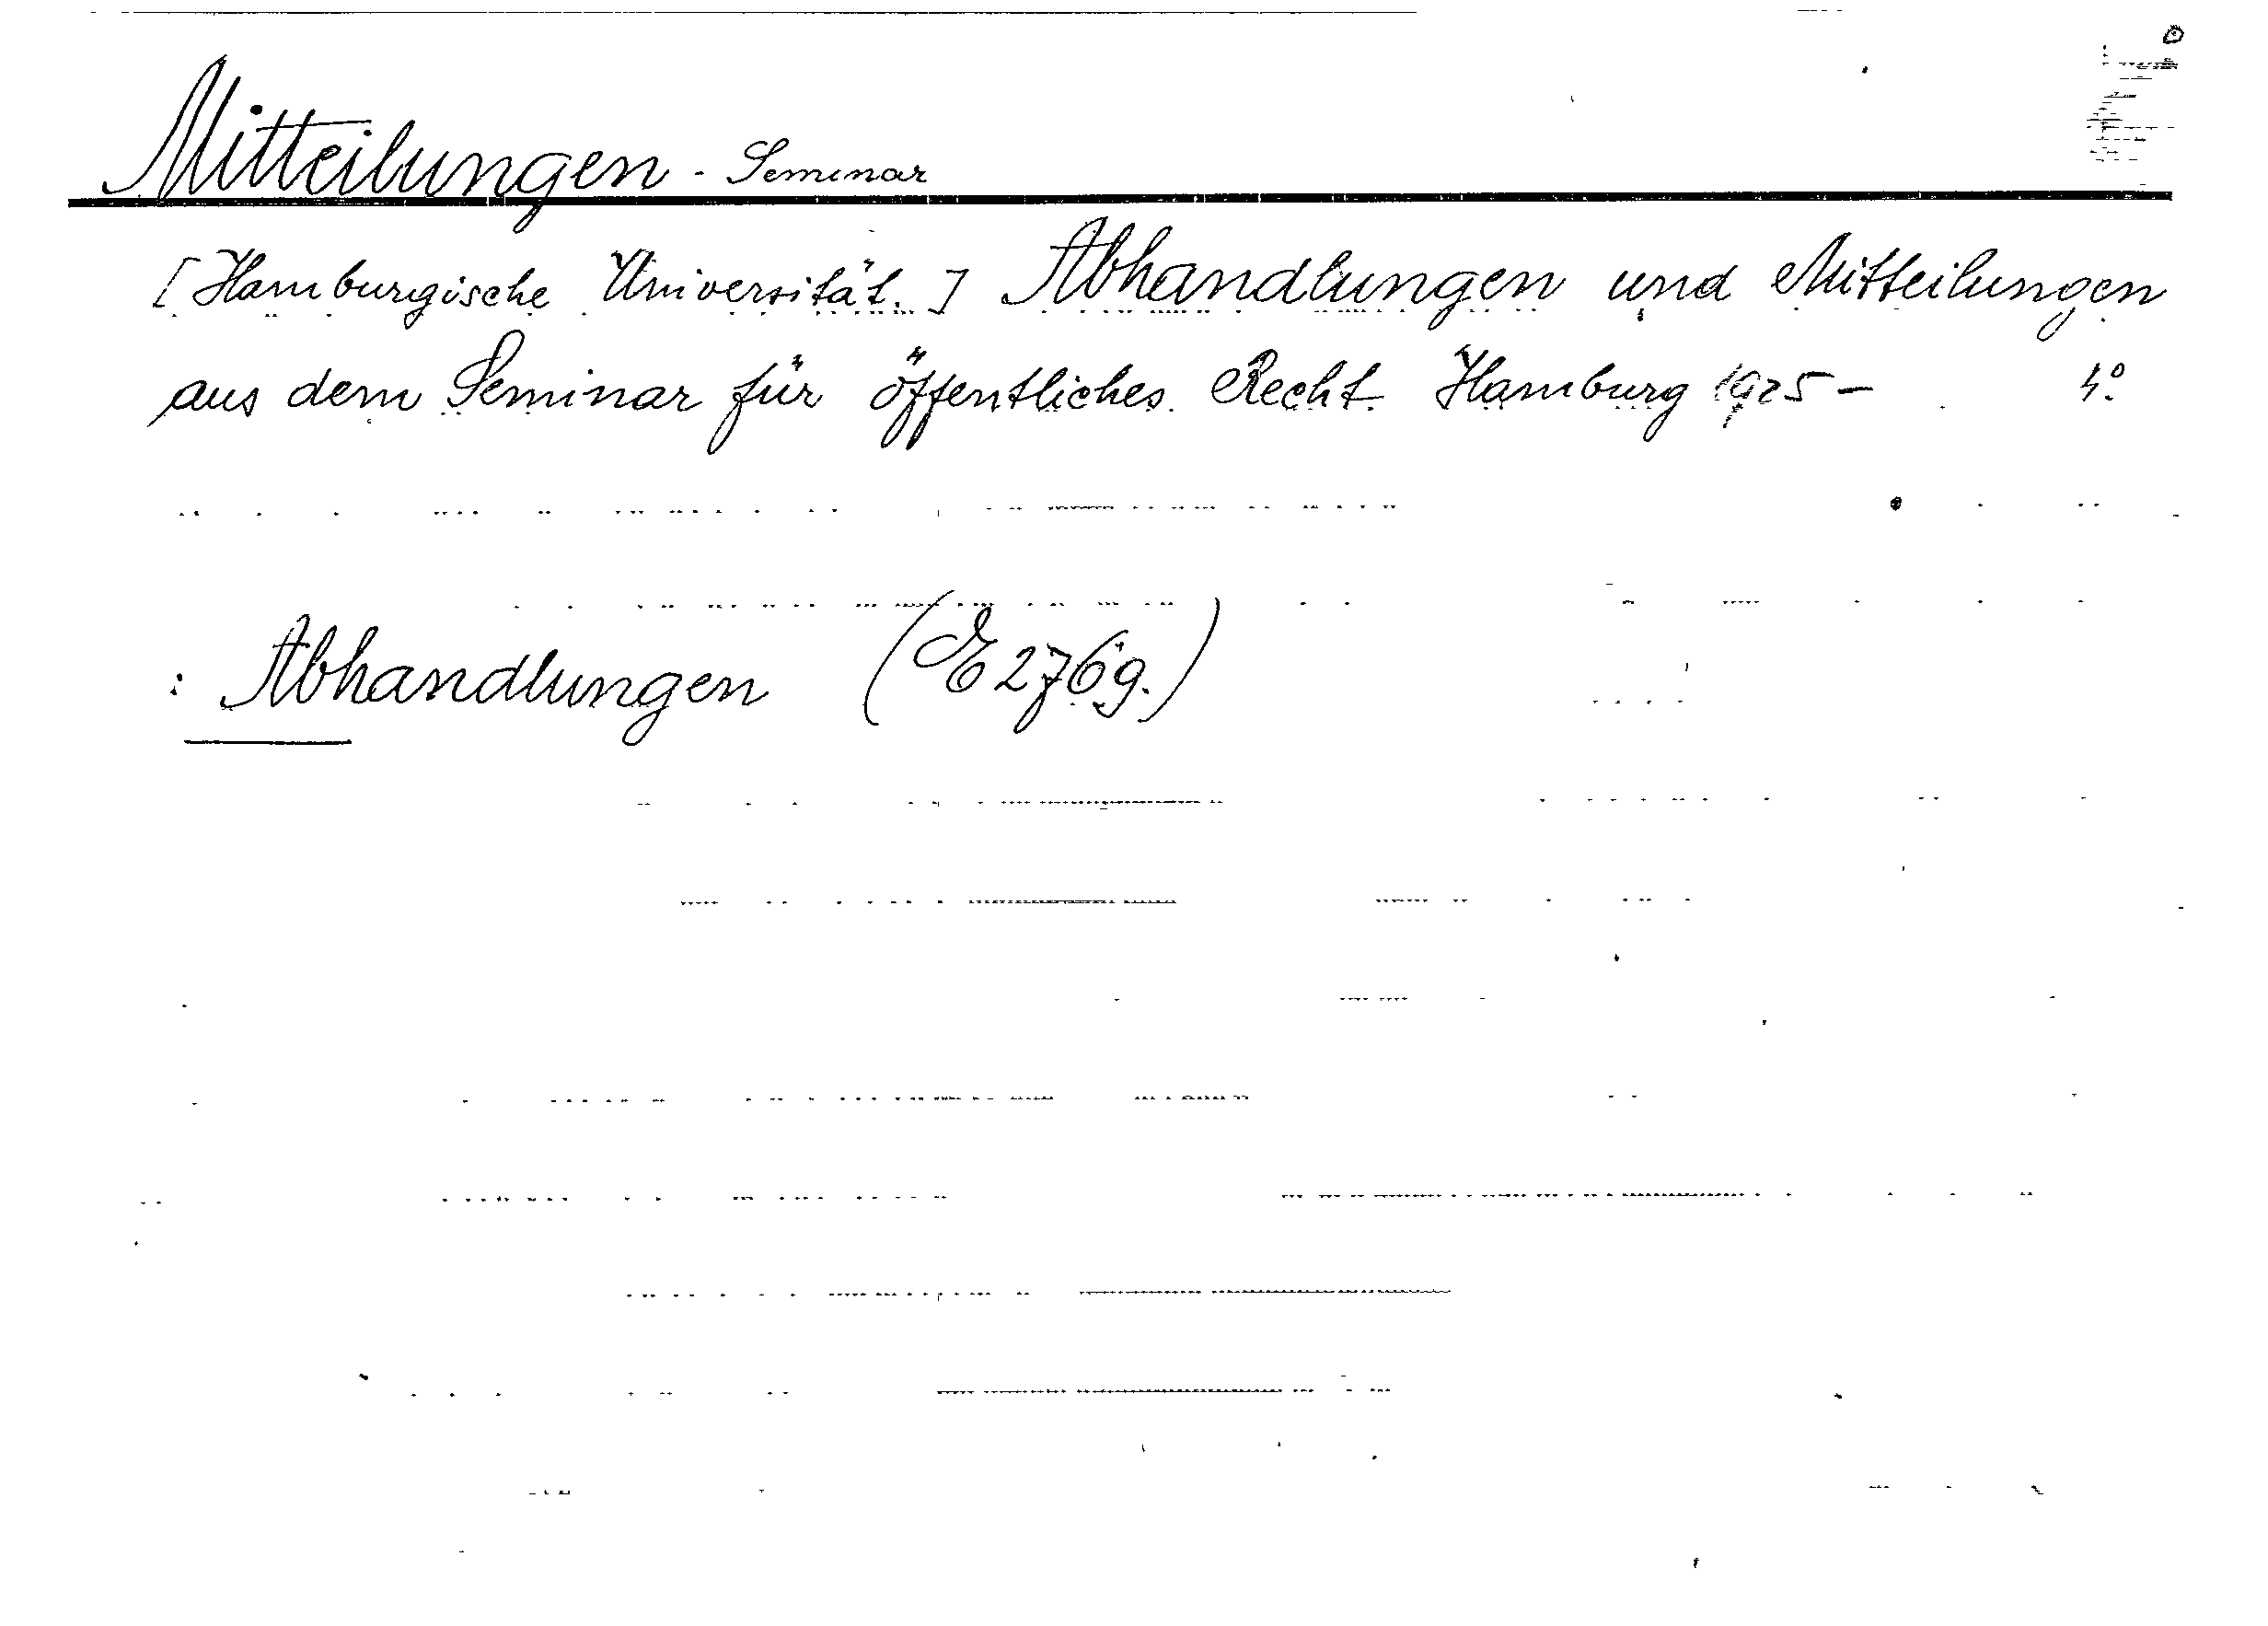 Mitteilungen - Seminar
[Hamburgische Universität.] Abhandlungen und Mitteilungen
aus dem Seminar für öffentliches Recht. Hamburg 1925 – 4°.
: Abhandlungen (E 2769.)